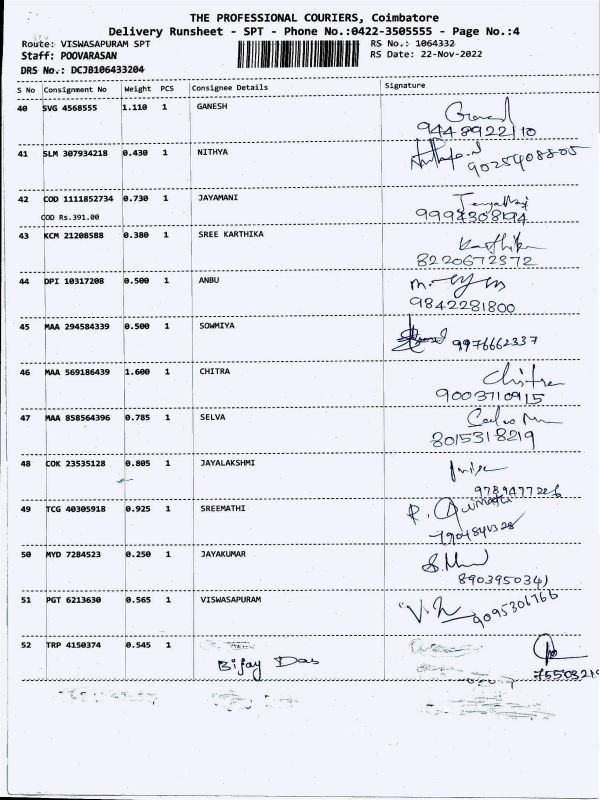 THE PROFESSIONAL COURIERS, Coimbatore
Delivery Runsheet - SPT - Phone No.:0422-3505555 - Page No.:4
Route: VISWASAPURAM SPT RS No.: 1064332
Staff: POOVARASAN RS Date: 22-Nov-2022
DRS No.: DCJB106433204
S No Consignment No Weight PCS Consignee Details Signature
40 SVG 4568555 1.110 1 GANESH
9448922110
41 SLM 307934218 0.430 1 NITHYA
9025408805
42 COD 1111852734 0.730 1 JAYAMANI
COD Rs.391.00 9994308194
43 KCM 21208588 0.380 1 SREE KARTHIKA Karthika
8220672372
44 DPI 10317208 0.500 1 ANBU
9842281800
45 MAA 294584339 0.500 1 SOWMIYA 9976662337
46 MAA 569186439 1.600 1 CHITRA Chitra
9003710915
47 MAA 858564396 0.785 1 SELVA
8015318219
48 COK 23535128 0.805 1 JAYALAKSHMI
49 TCG 40305918 0.925 1 SREEMATHI
50 MYD 7284523 0.250 1 JAYAKUMAR
8903950341
51 PGT 6213630 0.565 1 VISWASAPURAM 9095306766
52 TRP 4150374 0.545 1
Bijay Das